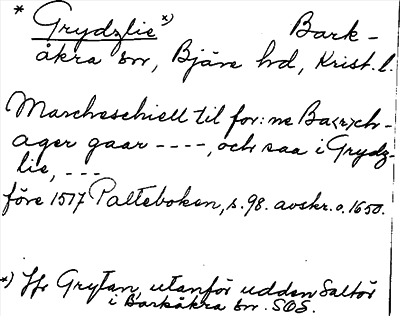 * Grydzlie *) Bark-
åkra sn, Bjäre hd, Krist. l.
Marcheschiell til for:ne Ba(r)ch-
ager gaar ----, och saa i Grydz-
lie, ---
före 1517 Palteboken, s. 98. avskr. o. 1650.
*) Jfr Grytan, utanför udden Saltör
i Barkåkra sn. SOS.